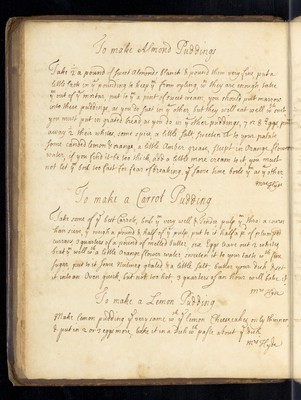 To make Almond Puddings
Take ½ a pound of sweet Almonds blanch & pound them very fine, put a
little sack in yᵉ pounding to keep yᵐ from oyling, wⁿ they are enough take
yᵐ out of yᵉ mortar, put to yᵐ a pint of cream you should put marrow
into these puddings, as you do suet in yᵉ other, but they will eat well
you must put in grated bread as you do in yᵉ other puddings, 7 or 8 Eggs
away ½ their whites, some spice, a little salt, sweeten it to your palate
some candied lemon & orange, a little Amber Grease, steept in Orange flower
water, if you find it to be thick add a little more cream to it you must
not let yᵐ boil too fast for fear of breaking, yᵉ same time boils yᵐ as yᵉ other
To make a Carrot Pudding
Take some of yᵉ best Carrots, boil yᵐ very well & tender, pulp yᵐ thro a coarse
hair sieve, yⁿ weigh a pound & half of yᵉ pulp, put to it half a pᵈ of
currans 3 quarters of a pound of melted butter, six Eggs leave out 3 whites
beat yᵐ well wᵗʰ a little Orange flower water sweeten it to your taste wᵗʰ fine
Sugar put to it some Nutmeg grated & a little salt, butter your dish & put
it into an Oven quick, but not too hot, 3 quarters of an hour will bake it
Mʳˢ Hyde
To make a Lemon Pudding
Make Lemon pudding yᵉ very same wᵗʰ yᵉ Lemon Cheesecakes only thinner
& put in 2 or 3 eggs more, bake it in a dish wᵗʰ paste about yᵉ dish
Mʳˢ Hyde